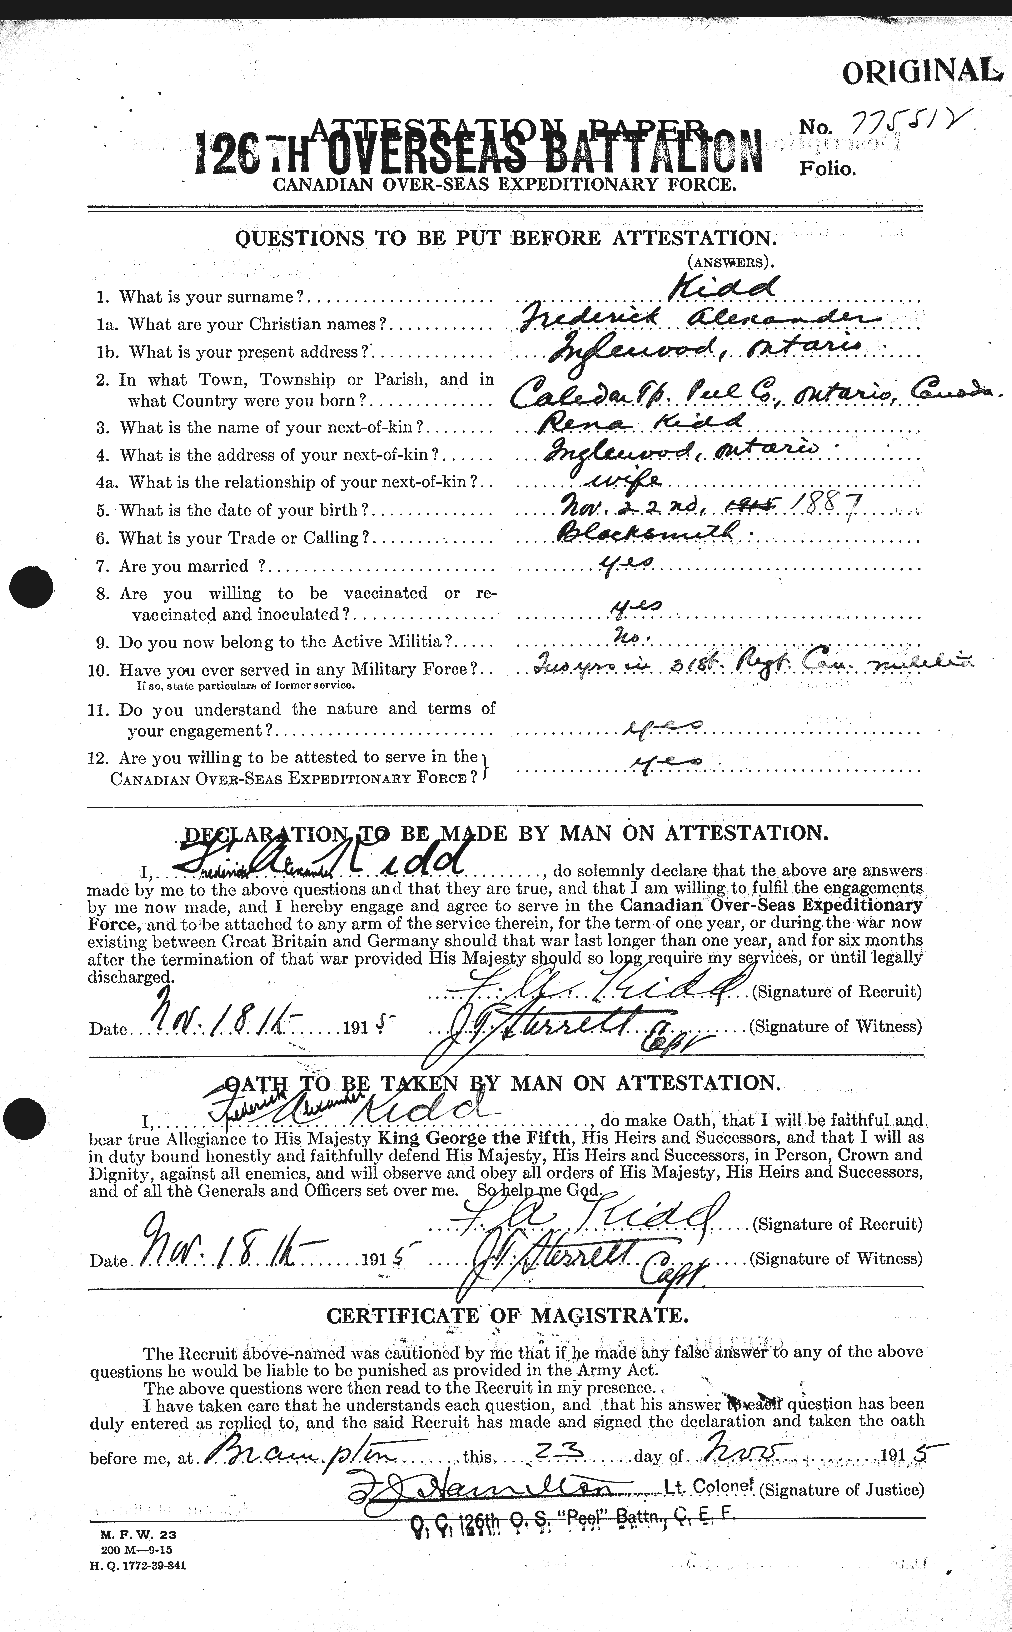 ORIGINAL
ATTESTATION PAPER. No. 775512
126TH OVERSEAS BATTALION
Folio.
CANADIAN OVER-SEAS EXPEDITIONARY FORCE.
QUESTIONS TO BE PUT BEFORE ATTESTATION.
(ANSWERS).
1. What is your surname? Kidd
1a. What are your Christian names? Frederick Alexander
1b. What is your present address? Inglewood, Ontario
2. In what Town, Township or Parish, and in
what Country were you born? Caledon Tp. Peel Co., Ontario, Canada.
3. What is the name of your next-of-kin? Rena Kidd
4. What is the address of your next-of-kin? Inglewood, Ontario
4a. What is the relationship of your next-of-kin? wife
5. What is the date of your birth? Nov. 22nd, 1915 1887
6. What is your Trade or Calling? Blacksmith.
7. Are you married ? yes
8. Are you willing to be vaccinated or re-
vaccinated and inoculated? yes
9. Do you now belong to the Active Militia? No.
10. Have you ever served in any Military Force? Two yrs in 31st. Regt. Can. militia
If so, state particulars of former service.
11. Do you understand the nature and terms of
your engagement? yes
12. Are you willing to be attested to serve in the
CANADIAN OVER-SEAS EXPEDITIONARY FORCE? yes
DECLARATION TO BE MADE BY MAN ON ATTESTATION.
I, Frederick Alexander Kidd, do solemnly declare that the above are answers
made by me to the above questions and that they are true, and that I am willing to fulfil the engagements
by me now made, and I hereby engage and agree to serve in the Canadian Over-Seas Expeditionary
Force, and to be attached to any arm of the service therein, for the term of one year, or during the war now
existing between Great Britain and Germany should that war last longer than one year, and for six months
after the termination of that war provided His Majesty should so long require my services, or until legally
discharged.
F. A. Kidd (Signature of Recruit)
Date Nov. 18th 1915 J. T. Sterrett Capt (Signature of Witness)
OATH TO BE TAKEN BY MAN ON ATTESTATION.
I, Frederick Alexander Kidd, do make Oath, that I will be faithful and
bear true Allegiance to His Majesty King George the Fifth, His Heirs and Successors, and that I will as
in duty bound honestly and faithfully defend His Majesty, His Heirs and Successors, in Person, Crown and
Dignity, against all enemies, and will observe and obey all orders of His Majesty, His Heirs and Successors,
and of all the Generals and Officers set over me. So help me God.
F A Kidd (Signature of Recruit)
Date Nov. 18th 1915 J. T. Sterrett Capt. (Signature of Witness)
CERTIFICATE OF MAGISTRATE.
The Recruit above-named was cautioned by me that if he made any false answer to any of the above
questions he would be liable to be punished as provided in the Army Act.
The above questions were then read to the Recruit in my presence.
I have taken care that he understands each question, and that his answer to each question has been
duly entered as replied to, and the said Recruit has made and signed the declaration and taken the oath
before me, at Brampton this 23 day of Nov 1915
F J Hamilton Lt. Colonel (Signature of Justice)
O. C. 126th O. S. "Peel" Battn., C. E. F.
M. F. W. 23
200 M—9-15
H. Q. 1772-39-841